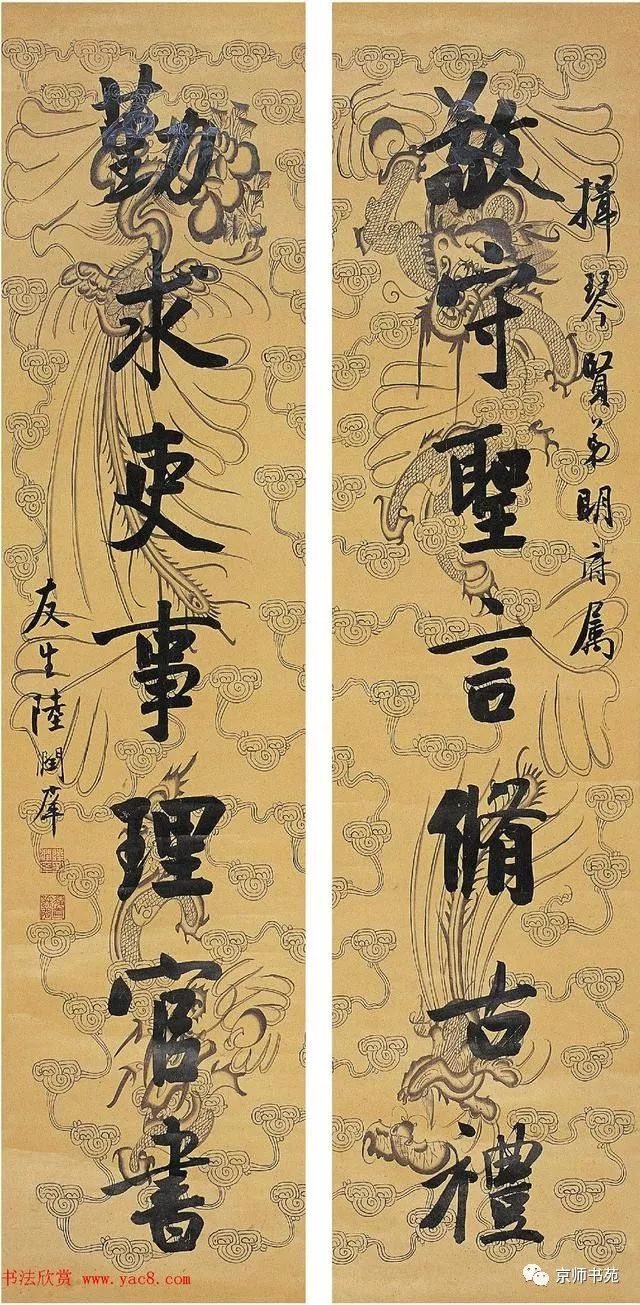 揖琴賢弟明府属
敬守聖言脩古禮
勤求吏事理官書
友生陸潤庠
书法欣赏 www.yac8.com
京师书苑